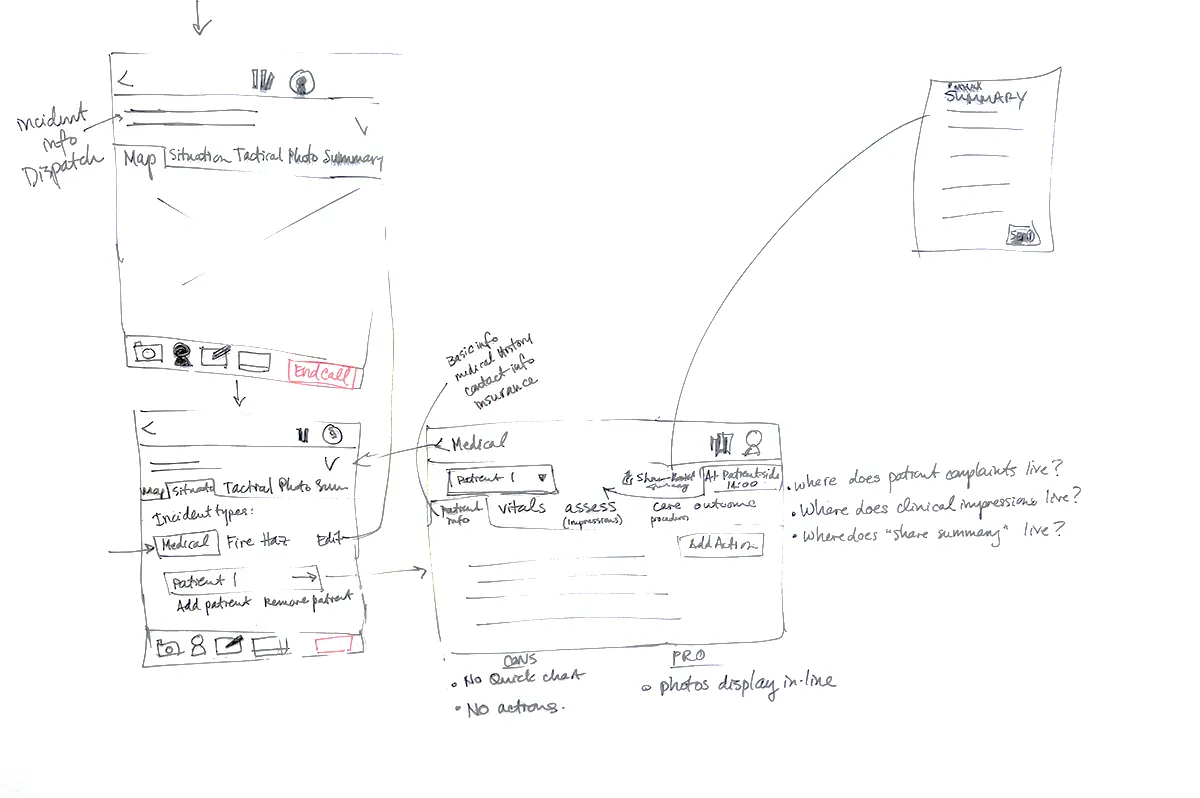 Incident
info
Dispatch
Map Situation Tactical Photo Summary
End Call
Map Situate Tactical Photo Sum
Incident types:
Medical Fire Haz Edit
Patient 1
Add patient Remove patient
Basic info
medical History
contact info
Insurance
Medical
Patient 1
Share Patient
summary
At Patientside
14:00
Patient
info
vitals
assess
(impressions)
care
procedures
outcome
Add Action
CONS
• No Quick chart
• No actions.
PRO
• photos display in-line
• where does patient complaints live?
• Where does clinical impressions live?
• Where does "share summary" live?
PATIENT
SUMMARY